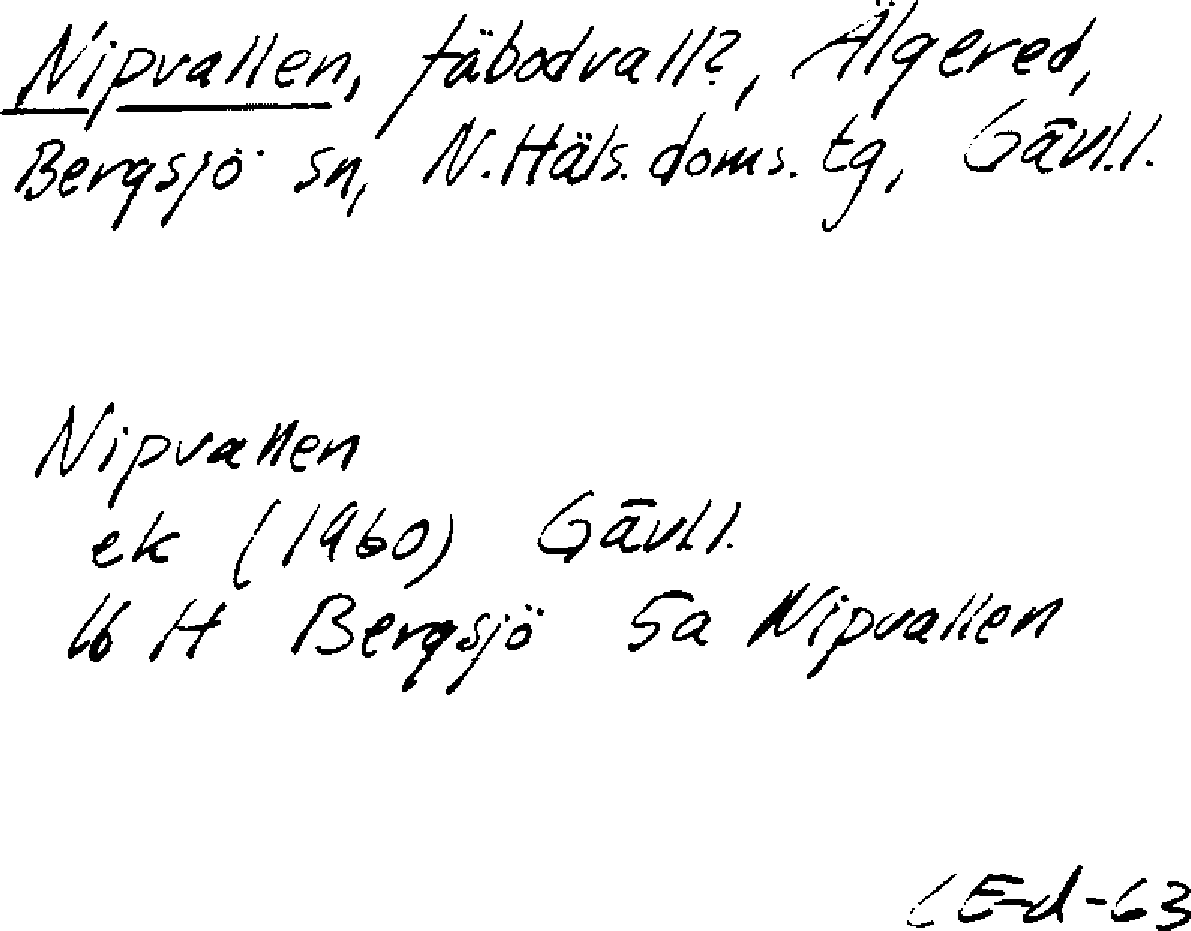 Nipvallen, fäbodvall?, Älgered,
Bergsjö sn, N. Häls. doms. tg, Gävl.l.
Nipvallen
ek (1960) Gävl.l.
16 H Bergsjö 5a Nipvallen